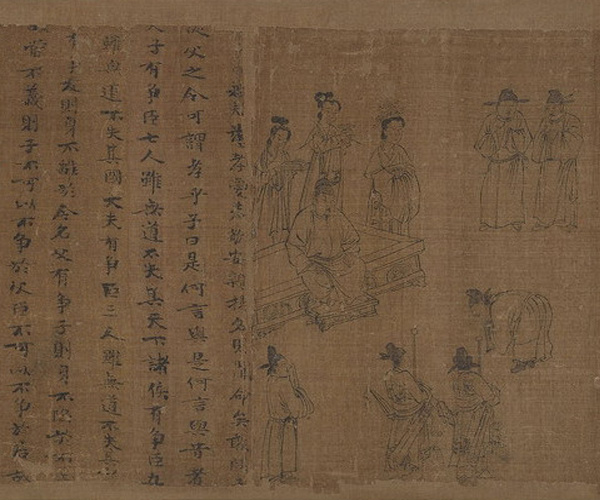 夫慈孝愛恭敬安親揚名則聞命矣敢問
從父之令可謂孝乎子曰是何言與是何言與昔者
天子有爭臣七人雖無道不失其天下諸侯有爭臣五
雖無道不失其國大夫有爭臣三人雖無道不失其家
士有爭友則身不離於令名父有爭子則身不陷於不
當不義則子不可以不爭於父臣不可以不爭於君故